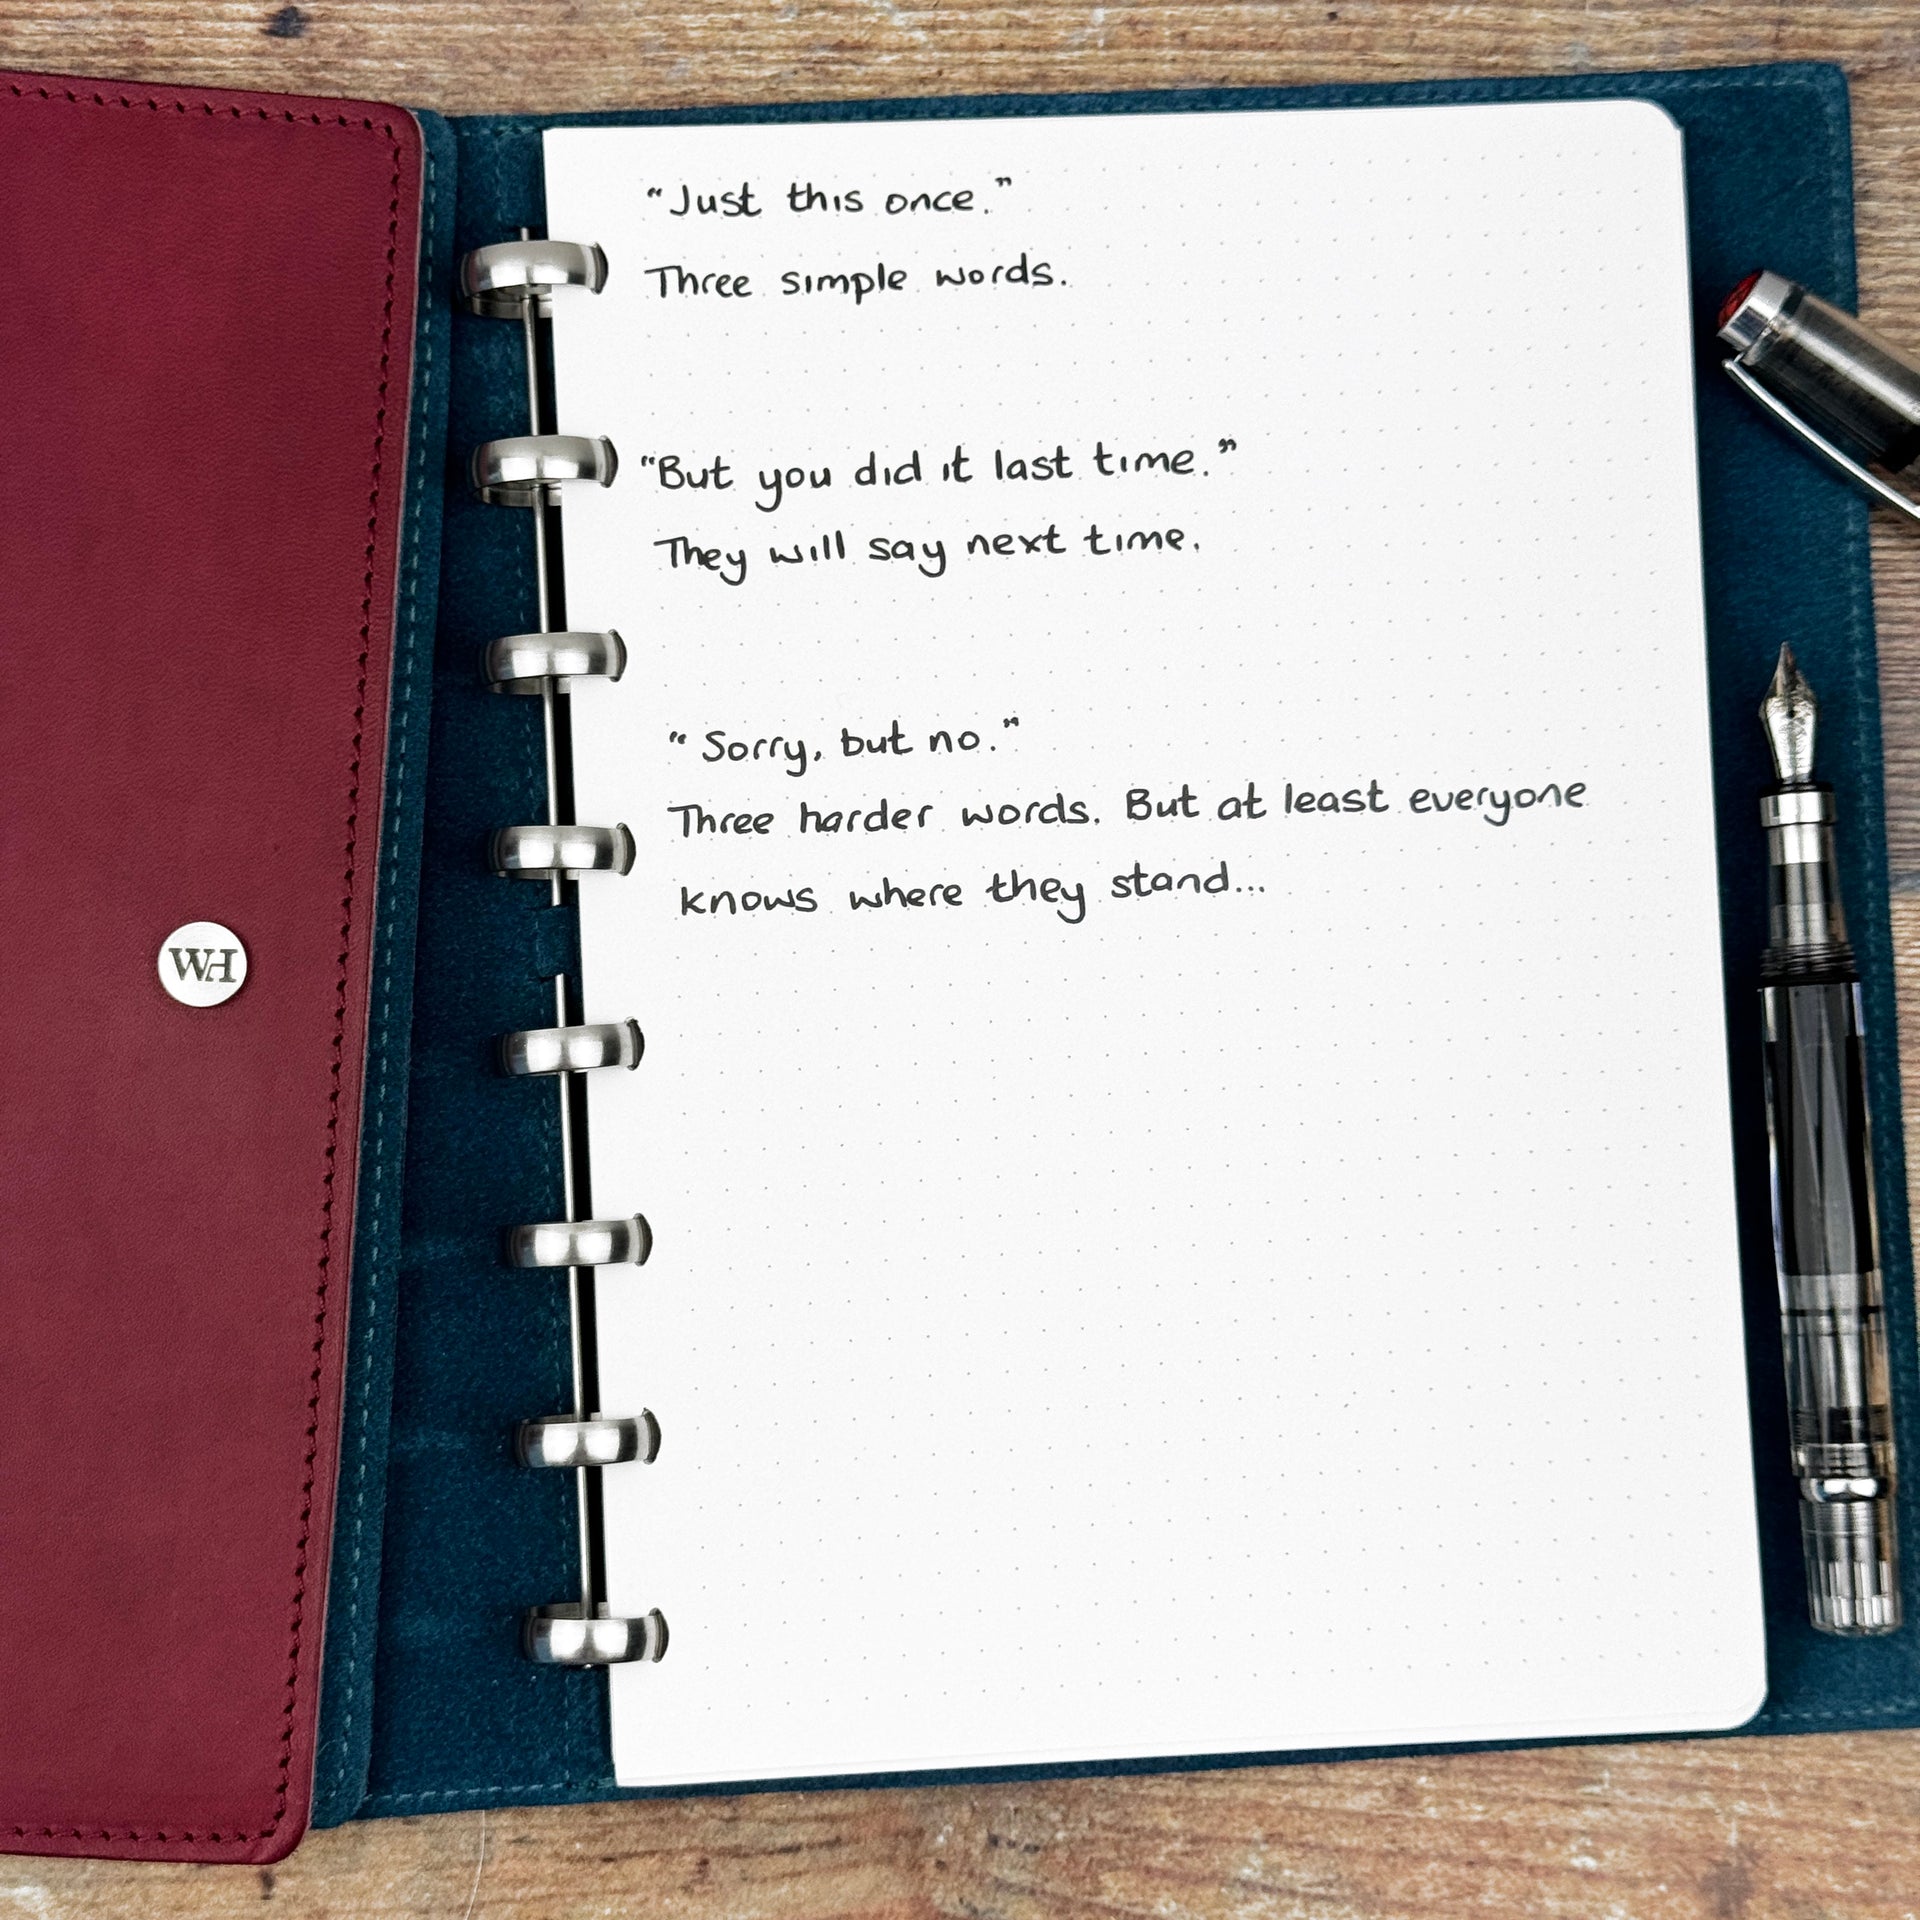 "Just this once."
Three simple words.
"But you did it last time."
They will say next time.
"Sorry, but no."
Three harder words. But at least everyone
knows where they stand...
WH